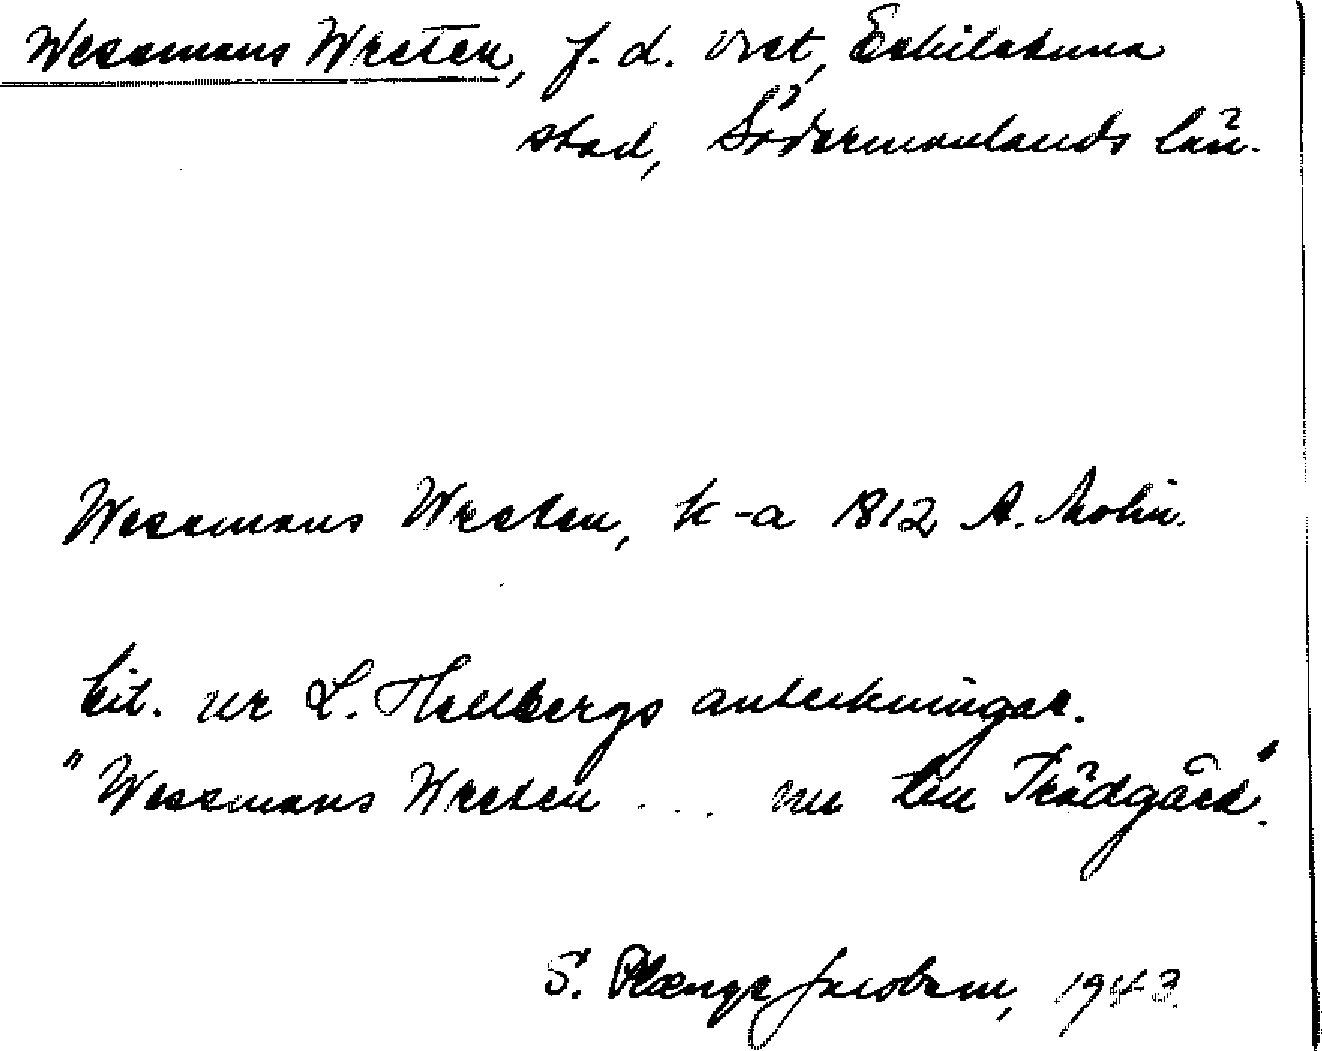 Wessmans Wreten, f. d. vret, Eskilstuna
stad, Södermanlands län.
Wessmans Wreten, k-a 1812 A. Molin.
Cit. ur L. Hellbergs anteckningar.
"Wessmans Wreten ... nu en Trädgård".
S. Plænge Jacobson, 1943.